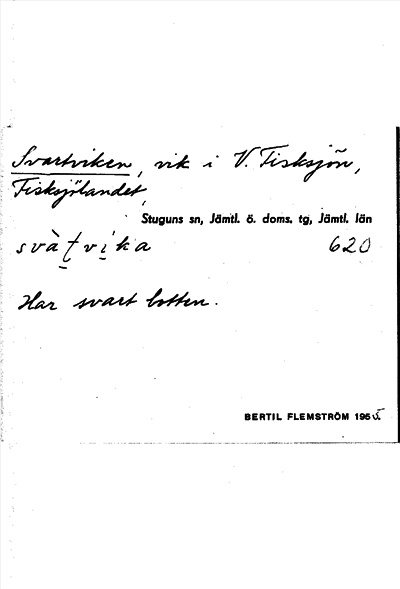 Svartviken, vik i V. Fisksjön,
Fisksjölandet,
Stuguns sn, Jämtl. ö. doms. tg, Jämtl. län
svàṯvi̱ka 620
Har svart botten.
BERTIL FLEMSTRÖM 1955